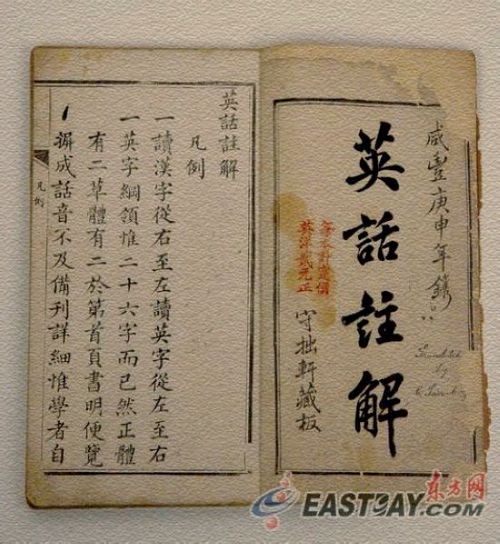 咸豐庚申年鐫
英話註解
守拙軒藏板
英洋貳元正
Translated
by
英話註解
凡例
一讀漢字從右至左讀英字從左至右
一英字綱領惟二十六字而已然正體
有二草體有二於第首頁書明便覽
摒成話音不及備刊詳細惟學者自
凡例
东方网
EASTDAY.COM